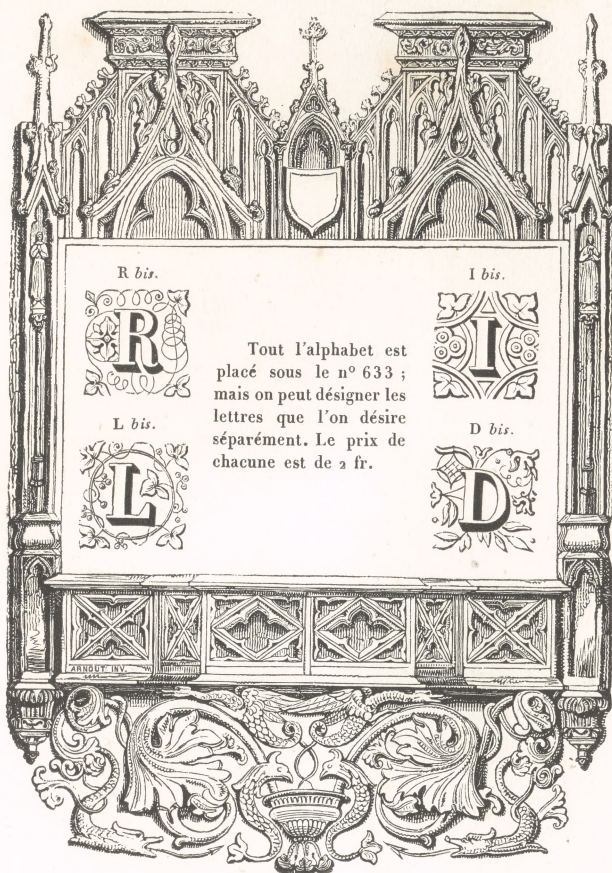 R bis.
R
L bis.
L
Tout l'alphabet est
placé sous le nº 633 ;
mais on peut désigner les
lettres que l'on désire
séparément. Le prix de
chacune est de 2 fr.
I bis.
I
D bis.
D
ARNOUT INV.